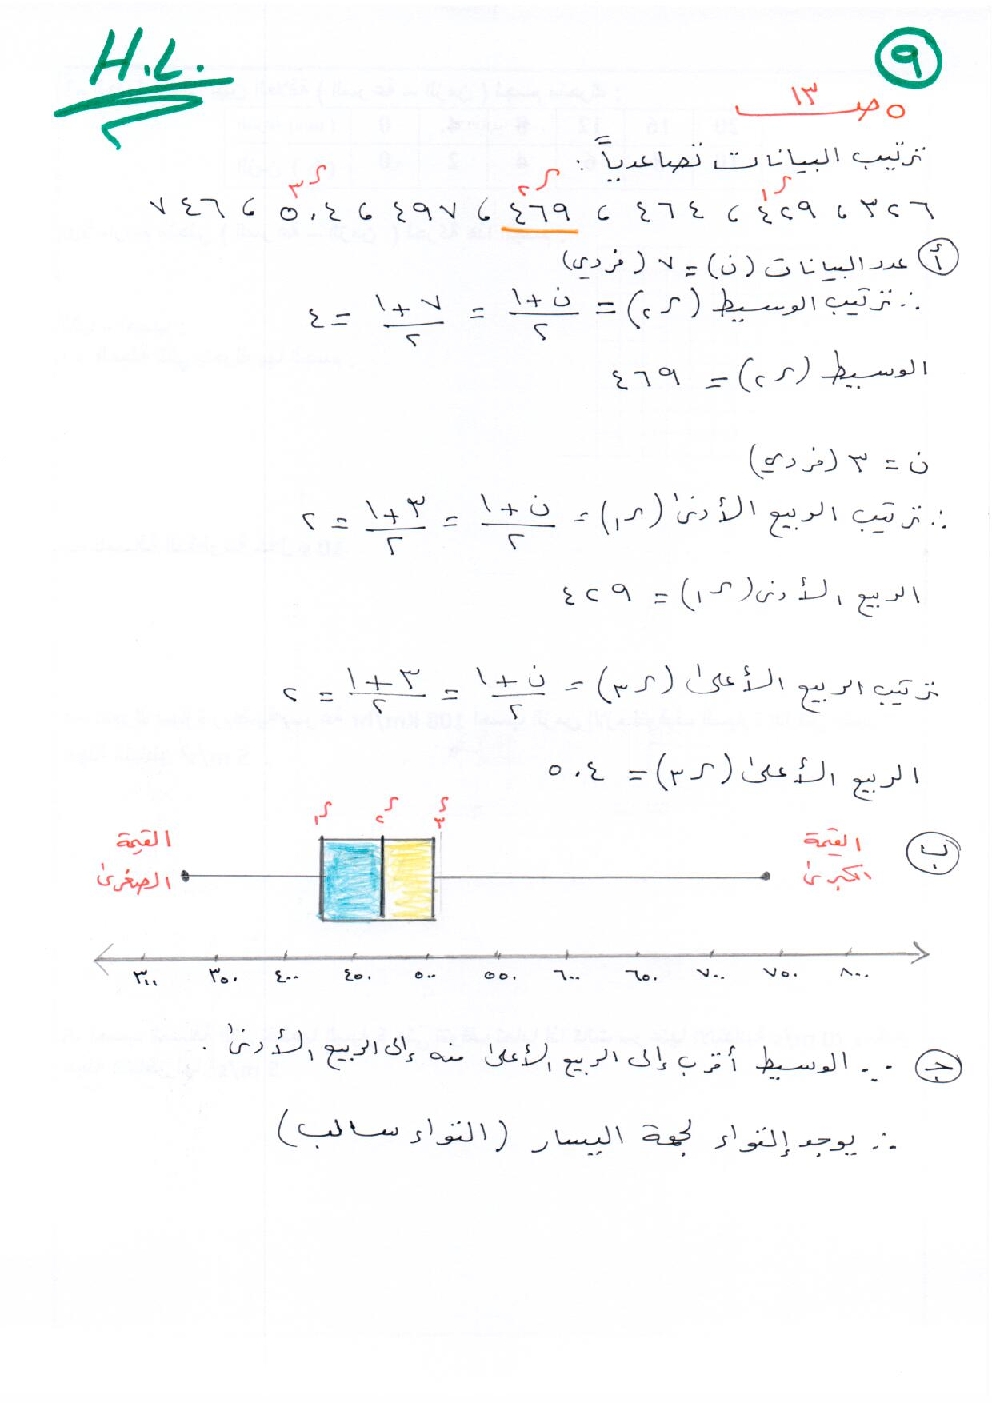 H.L.
٩
ص ١٣
ترتيب البيانات تصاعدياً :
ر١ ر٢ ر٣
٣٢٦ ، ٤٢٩ ، ٤٦٤ ، ٤٦٩ ، ٤٩٧ ، ٥٠٤ ، ٧٤٦
أ عدد البيانات (ن) = ٧ (فردي)
∴ ترتيب الوسيط (ر٢) = (ن+١)/٢ = (٧+١)/٢ = ٤
الوسيط (ر٢) = ٤٦٩
ن = ٣ (فردي)
∴ ترتيب الربيع الأدنى (ر١) = (ن+١)/٢ = (٣+١)/٢ = ٢
الربيع الأدنى (ر١) = ٤٢٩
ترتيب الربيع الأعلى (ر٣) = (ن+١)/٢ = (٣+١)/٢ = ٢
الربيع الأعلى (ر٣) = ٥٠٤
ب
القيمة الصغرى
ر١ ر٢ ر٣
القيمة الكبرى
٣٠٠ ٣٥٠ ٤٠٠ ٤٥٠ ٥٠٠ ٥٥٠ ٦٠٠ ٦٥٠ ٧٠٠ ٧٥٠ ٨٠٠
ج ∵ الوسيط أقرب إلى الربيع الأعلى منه إلى الربيع الأدنى .
∴ يوجد إلتواء لجهة اليسار (التواء سالب)